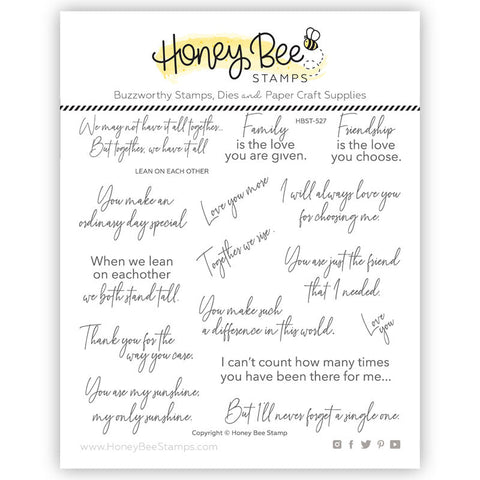 Honey Bee
STAMPS
Buzzworthy Stamps, Dies and Paper Craft Supplies
We may not have it all together...
But together, we have it all
Family
is the love
you are given.
HBST-527
Friendship
is the love
you choose.
LEAN ON EACH OTHER
You make an
ordinary day special
Love you more
I will always love you
for choosing me.
Together we rise...
When we lean
on eachother
we both stand tall.
You are just the friend
that I needed.
You make such
a difference in this world.
Love
you
Thank you for the
way you care.
I can't count how many times
you have been there for me...
You are my sunshine,
my only sunshine.
But I'll never forget a single one.
Copyright © Honey Bee Stamp
www.HoneyBeeStamps.com